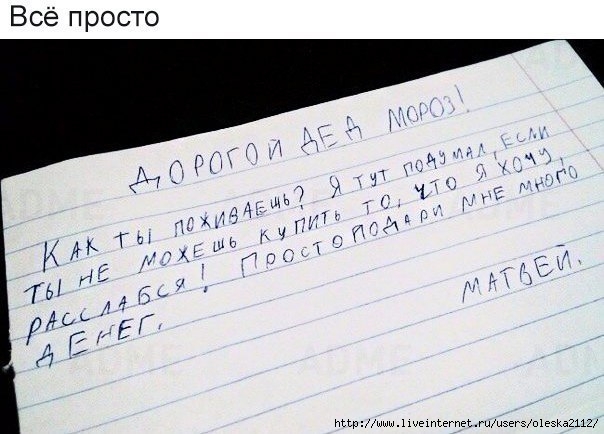 Всё просто
ДОРОГОЙ ДЕД МОРОЗ!
КАК ТЫ ПОЖИВАЕШЬ? Я ТУТ ПОДУМАЛ, ЕСЛИ
ТЫ НЕ МОЖЕШЬ КУПИТЬ ТО, ЧТО Я ХОЧУ,
РАССЛАБСЯ! ПРОСТО ПОДАРИ МНЕ МНОГО
ДЕНЕГ.
МАТВЕЙ.
http://www.liveinternet.ru/users/oleska2112/